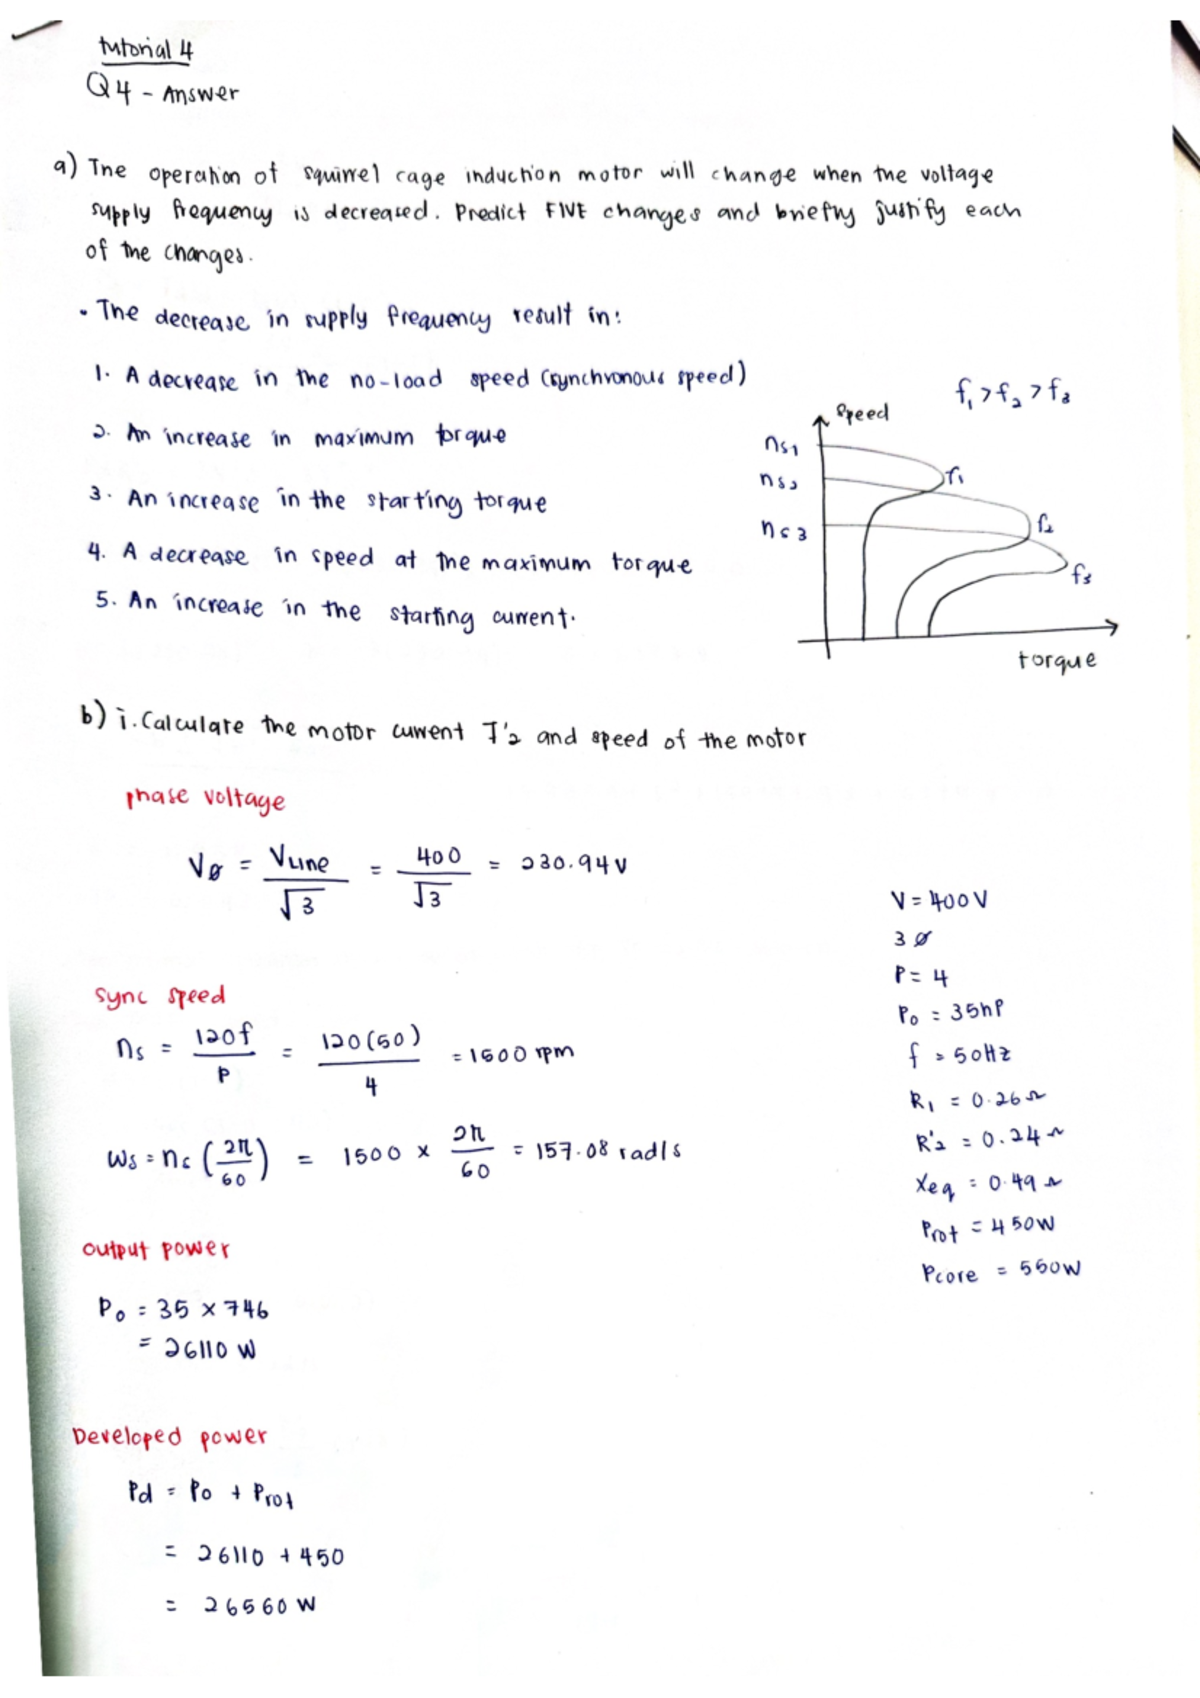 tutorial 4
Q4 - Answer
a) The operation of squirrel cage induction motor will change when the voltage
supply frequency is decreased. Predict FIVE changes and briefly justify each
of the changes.
• The decrease in supply frequency result in:
1. A decrease in the no-load speed (synchronous speed)
2. An increase in maximum torque
3. An increase in the starting torque
4. A decrease in speed at the maximum torque
5. An increase in the starting current.
f₁ > f₂ > f₃
speed
ns1
ns2
ns3
f₁
f₂
f₃
torque
b) i. Calculate the motor current I'₂ and speed of the motor
phase voltage
Vø = VLine / √3 = 400 / √3 = 230.94 V
sync speed
ns = 120f / P = 120(50) / 4 = 1500 rpm
ωs = ns (2π / 60) = 1500 × 2π / 60 = 157.08 rad/s
output power
Po = 35 × 746
= 26110 W
Developed power
Pd = Po + Prot
= 26110 + 450
= 26560 W
V = 400 V
3 ø
P = 4
Po = 35hP
f = 50Hz
R₁ = 0.26 Ω
R'₂ = 0.24 Ω
Xeq = 0.49 Ω
Prot = 450W
Pcore = 550W